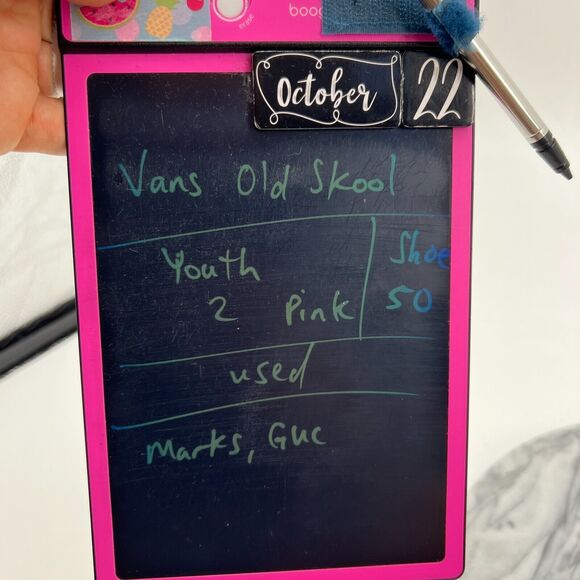 boog
erase
October 22
Vans Old Skool
Youth
2 Pink
Shoe
50
used
Marks, GUC